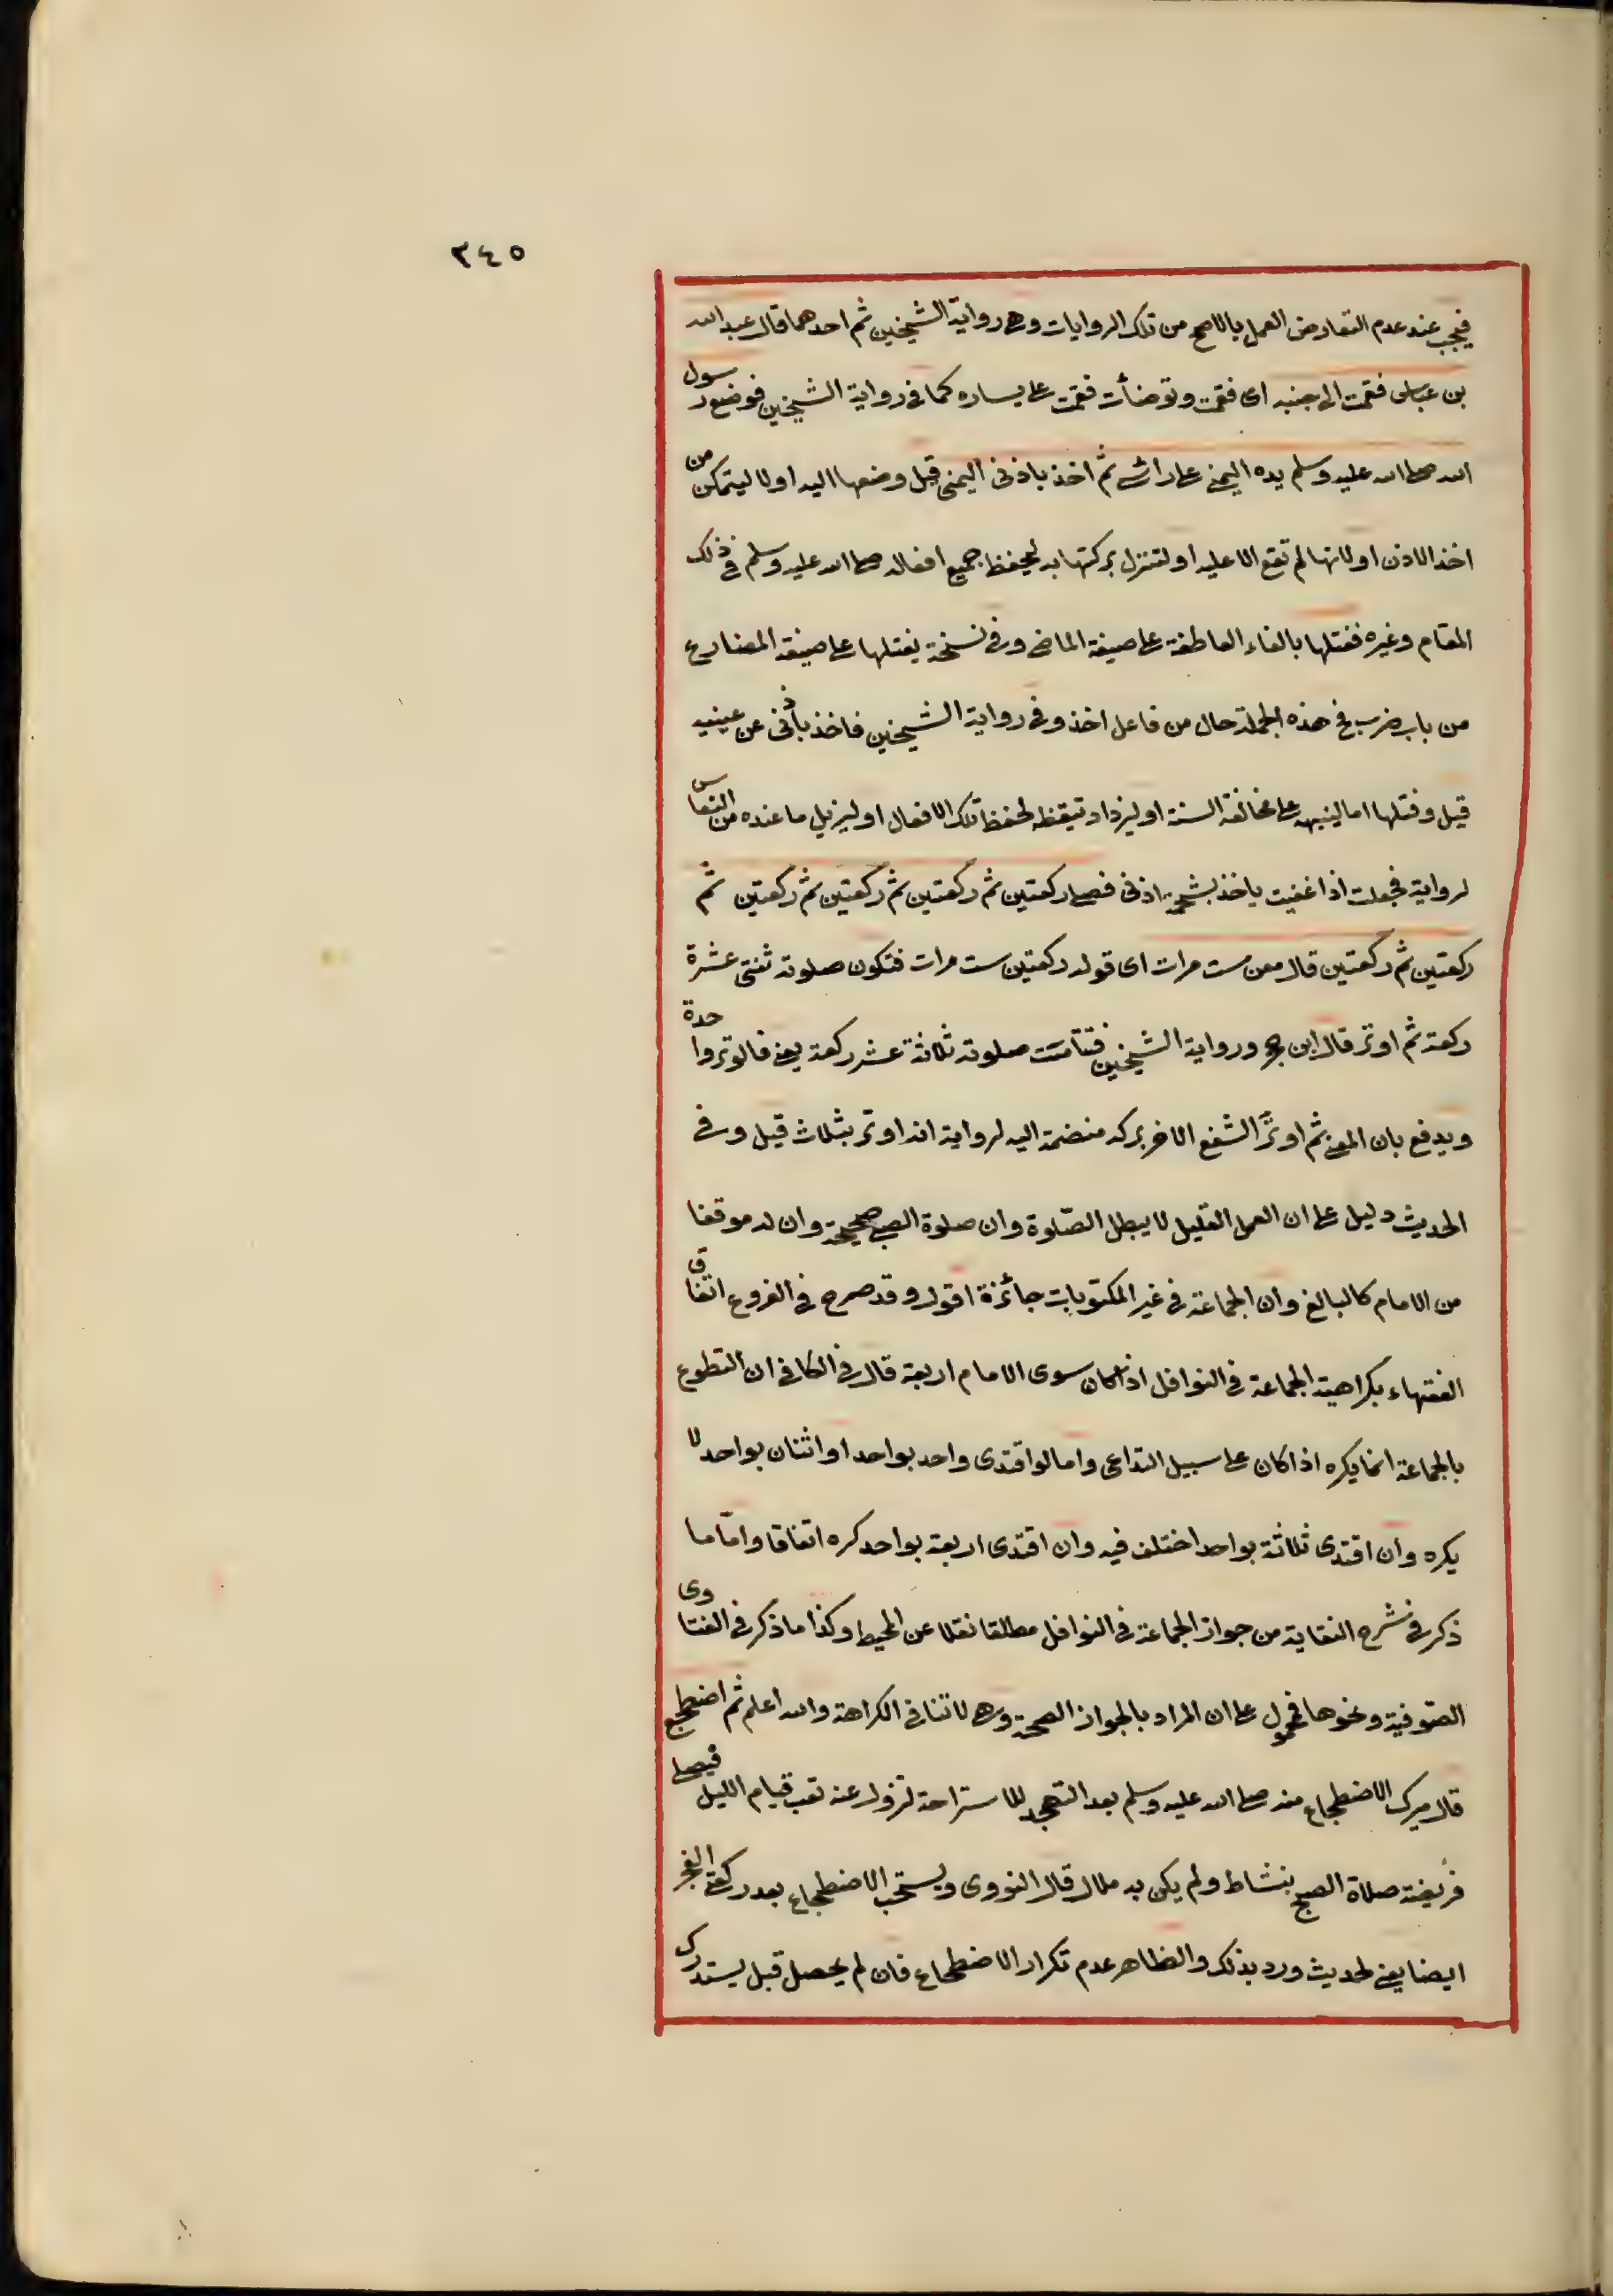 ٣٤٥
فيجب عند عدم التعارض العمل بالاصح من تلك الروايات وهى رواية الشيخين ثم احدهما قال عبد الله
بن عباس فقمت الى جنبه اى فقمت وتوضأت فقمت على يساره كما فى رواية الشيخين فوضع رسول
الله صلى الله عليه وسلم يده اليمنى على رأسى ثم اخذ باذنى اليمنى قيل وضعها اليه اولا ليتمكن من
اخذ الاذن او لانها لم تقع الا عليه او لتنزل بركتها به ليحفظ جميع افعاله صلى الله عليه وسلم فى ذلك
المقام وغيره ففتلها بالفاء العاطفة على صيغة الماضى وفى نسخة يفتلها على صيغة المضارع
من باب ضرب فح هذه الجملة حال من فاعل اخذ وفى رواية الشيخين فاخذ بأذنى عن يمينه
قيل وفتلها اما لينبهه على مخالفة السنة او ليزداد تيقظه لحفظ تلك الافعال او ليزيل ما عنده من النعاس
لرواية فجعلت اذا غفيت ياخذ بشحمة اذنى فصلى ركعتين ثم ركعتين ثم ركعتين ثم ركعتين ثم
ركعتين ثم ركعتين قال معن ست مرات اى قوله ركعتين ست مرات فتكون صلوته ثنتى عشرة
ركعة ثم اوتر قال ابن حجر ورواية الشيخين فتتامت صلوته ثلاثة عشر ركعة يعنى فالوتر واحدة
ويدفع بان المعنى ثم اوتر الشفع الاخر بركعة منضمة اليه لرواية انه اوتر بثلاث قيل وفى
الحديث دليل على ان العمل القليل لا يبطل الصّلوة وان صلوة الصبى صحيحة وان له موقفا
من الامام كالبالغ وان الجماعة فى غير المكتوبات جائزة اقول وقد صرح فى الفروع اتفاق
الفقهاء بكراهية الجماعة فى النوافل اذا كان سوى الامام اربعة قال فى الكافى ان التطوع
بالجماعة انما يكره اذا كان على سبيل التداعى واما لو اقتدى واحد بواحد او اثنان بواحد لا
يكره وان اقتدى ثلاثة بواحد اختلف فيه وان اقتدى اربعة بواحد كره اتفاقا وامّا ما
ذكر فى شرح النقاية من جواز الجماعة فى النوافل مطلقا نقلا عن المحيط وكذا ما ذكر فى الفتاوى
الصّوفية ونحوها فمحمول على ان المراد بالجواز الصحة وهى لا تنافى الكراهة والله اعلم ثم اضطجع
قال ميرك الاضطجاع منه صلى الله عليه وسلم بعد التهجد للاستراحة لتزول عنه تعب قيام الليل فيصلى
فريضة صلاة الصبح بنشاط ولم يكن به ملال قال النووى ويستحب الاضطجاع بعد ركعتى الفجر
ايضا يعنى لحديث ورد بذلك والظاهر عدم تكرار الاضطجاع فان لم يحصل قبل يستدرك